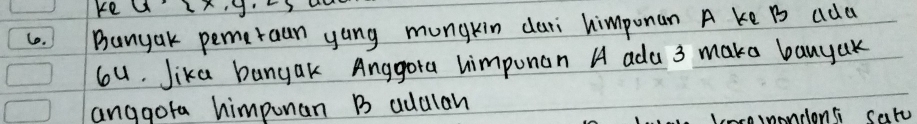 6. Banyak pemetaan yang mungkin dari himpunan A ke B ada
64. Jika banyak Anggota himpunan A ada 3 maka banyak
anggota himpunan B adalah
satu